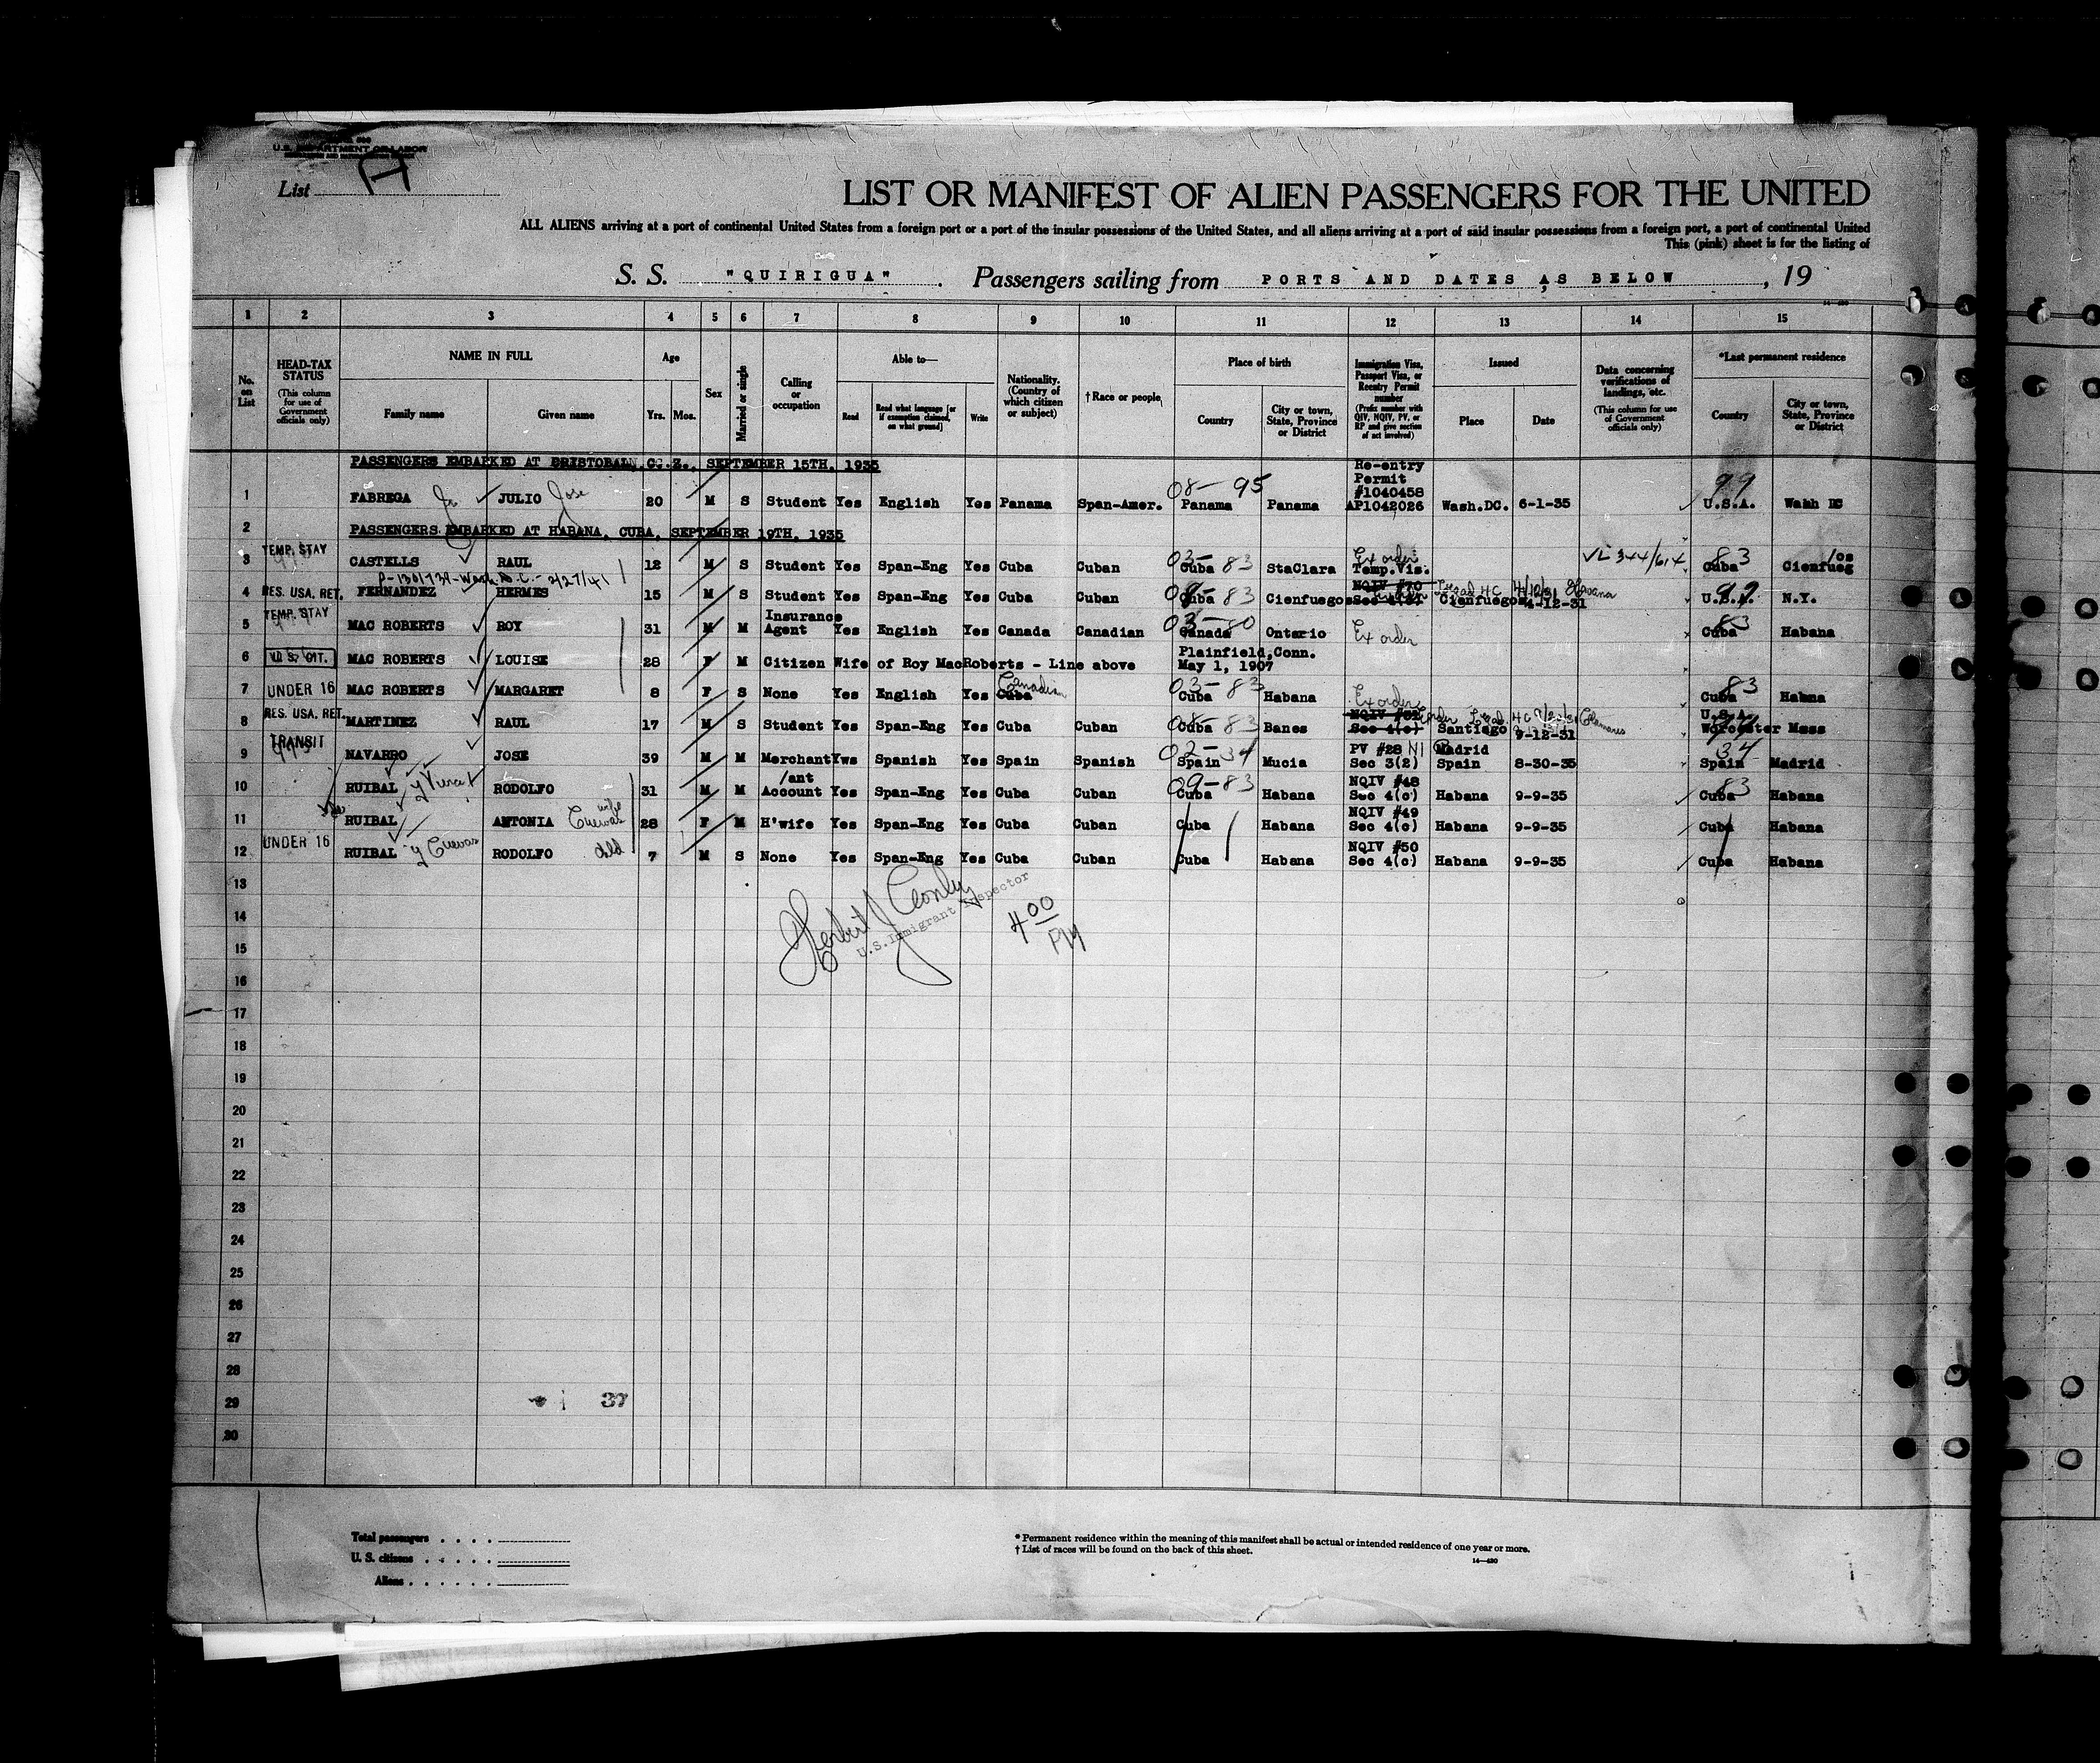 U.S. DEPARTMENT OF LABOR
List
LIST OR MANIFEST OF ALIEN PASSENGERS FOR THE UNITED
ALL ALIENS arriving at a port of continental United States from a foreign port or a port of the insular possessions of the United States, and all aliens arriving at a port of said insular possessions from a foreign port, a port of continental United
This (pink) sheet is for the listing of
S. S. "QUIRIGUA". Passengers sailing from PORTS AND DATES AS BELOW, 19
1 2 3 4 5 6 7 8 9 10 11 12 13 14 15
No. on List
HEAD-TAX STATUS (This column for use of Government officials only)
NAME IN FULL
Family name Given name
Age
Yrs. Mos.
Sex
Married or single
Calling or occupation
Able to—
Read Read what language [or if exemption claimed, on what ground] Write
Nationality. (Country of which citizen or subject)
†Race or people
Place of birth
Country City or town, State, Province or District
Immigration Visa, Passport Visa, or Reentry Permit number (Prefix number with QIV, NQIV, PV, or RP and give section of act involved)
Issued
Place Date
Data concerning verifications of landings, etc. (This column for use of Government officials only)
*Last permanent residence
Country City or town, State, Province or District
PASSENGERS EMBARKED AT SEPTEMBER 15TH, 1935
1 FABREGA JULIO Jose 20 M S Student Yes English Yes Panama Span-Amer. 08-95 Panama Panama Re-entry Permit #1040458 AP1042026 Wash.DC. 6-1-35 99 U.S.A. Wash DC
2 PASSENGERS EMBARKED AT HABANA, CUBA, SEPTEMBER 19TH, 1935
3 TEMP. STAY CASTELLS RAUL 12 M S Student Yes Span-Eng Yes Cuba Cuban 03-83 Cuba StaClara Ex order Temp.Vis. VL 344/614 83 Cuba Cienfuegos
P-1301739-Wash. D.C.- 2/27/41
4 RES. USA. RET. FERNANDEZ HERMES 15 M S Student Yes Span-Eng Yes Cuba Cuban 83 Cuba Cienfuegos NQIV #70 Cienfuegos 4-12-31 U.S.A. N.Y.
5 TEMP. STAY MAC ROBERTS ROY 31 M M Insurance Agent Yes English Yes Canada Canadian 03-80 Canada Ontario Ex order 83 Cuba Habana
6 MAC ROBERTS LOUISE 28 F M Citizen Wife of Roy MacRoberts - Line above Plainfield,Conn. May 1, 1907
7 UNDER 16 MAC ROBERTS MARGARET 8 F S None Yes English Yes Cuba Canadian 03-83 Cuba Habana Ex order 83 Cuba Habana
8 RES. USA. RET. MARTINEZ RAUL 17 M S Student Yes Span-Eng Yes Cuba Cuban 83 Cuba Banes Sec 4(e) Santiago 9-12-31 U.S.A. Worcester Mass
9 TRANSIT NAVARRO JOSE 39 M M Merchant Yws Spanish Yes Spain Spanish 02-34 Spain Mucia PV #28 Sec 3(2) Madrid Spain 8-30-35 34 Spain Madrid
10 RUIBAL RODOLFO 31 M M /ant Account Yes Span-Eng Yes Cuba Cuban 09-83 Cuba Habana NQIV #48 Sec 4(c) Habana 9-9-35 83 Cuba Habana
11 RUIBAL ANTONIA Cuevas wife 28 F M H'wife Yes Span-Eng Yes Cuba Cuban Cuba Habana NQIV #49 Sec 4(c) Habana 9-9-35 Cuba Habana
12 UNDER 16 RUIBAL y Cuevas RODOLFO child 7 M S None Yes Span-Eng Yes Cuba Cuban Cuba Habana NQIV #50 Sec 4(c) Habana 9-9-35 Cuba Habana
13
14 4 00 PM
U.S. Immigrant Inspector
15
16
17
18
19
20
21
22
23
24
25
26
27
28
29 37
30
Total passengers . . . .
U. S. citizens . . . . .
Aliens . . . . . .
* Permanent residence within the meaning of this manifest shall be actual or intended residence of one year or more.
† List of races will be found on the back of this sheet.
14—430